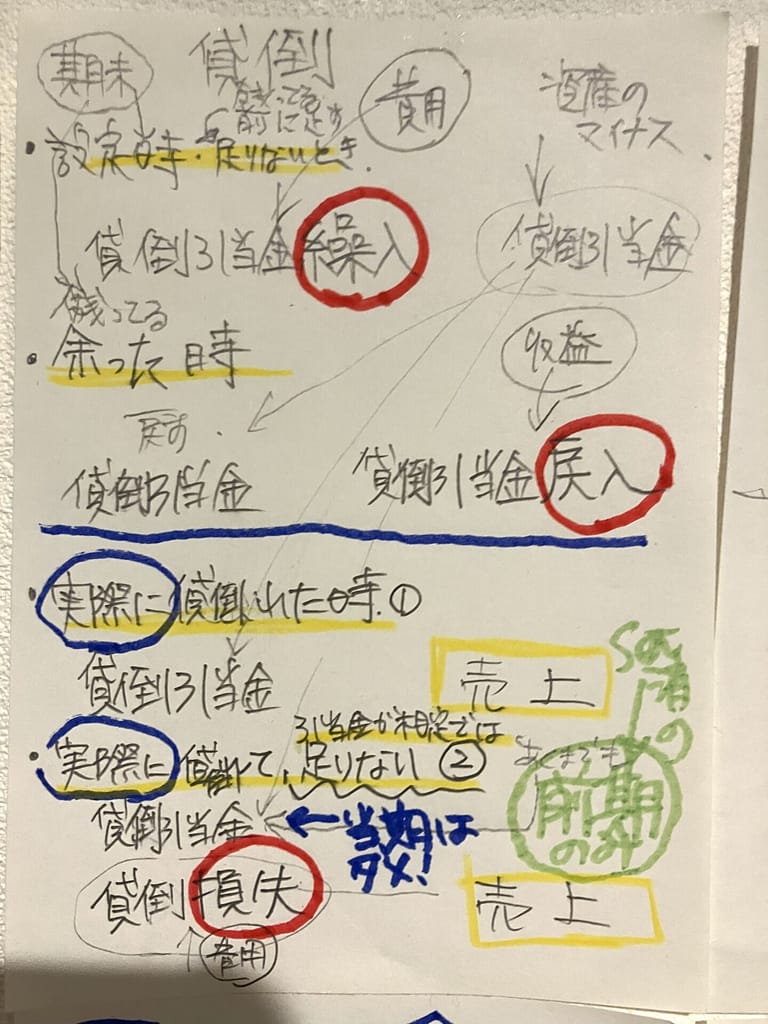 期末 貸倒
費用
資産の
マイナス
残ってる
前に足す
・設定時・足りないとき.
貸倒引当金繰入
貸倒引当金
残ってる
・余った時
収益
戻す.
貸倒引当金
貸倒引当金戻入
・実際に貸倒れた時.①
貸倒引当金
売上
引当金が想定では
・実際に貸倒れて、足りない②
あくまでも
前期
のみ
貸倒引当金
←当期は
ダメ!
貸倒損失
売上
費用